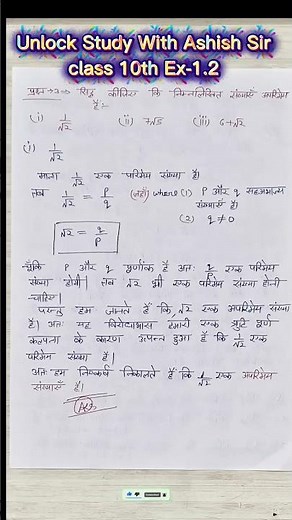 Unlock Study With Ashish Sir
class 10th Ex-1.2
प्रश्न→3⇒ सिद्ध कीजिए कि निम्नलिखित संख्याएँ अपरिमेय
हैं:-
(i) 1/√2 (ii) 7√5 (iii) 6+√2
(i) 1/√2
माना 1/√2 एक परिमेय संख्या है।
तब 1/√2 = p/q (जहाँ) where (1) P और q सहअभाज्य
संख्याएँ है।
(2) q≠0
√2 = q/p
चूँकि P और q पूर्णांक है अतः q/p एक परिमेय
संख्या होगी। तब √2 भी एक परिमेय संख्या होनी
चाहिए।
परन्तु हम जानते हैं कि √2 एक अपरिमेय संख्या
है। अतः यह विरोधाभास हमारी एक त्रुटि पूर्ण
कल्पना के कारण उत्पन्न हुआ है कि 1/√2 एक
परिमेय संख्या है।
अतः हम निष्कर्ष निकालते हैं कि 1/√2 एक अपरिमेय
संख्याएँ है।
Ans